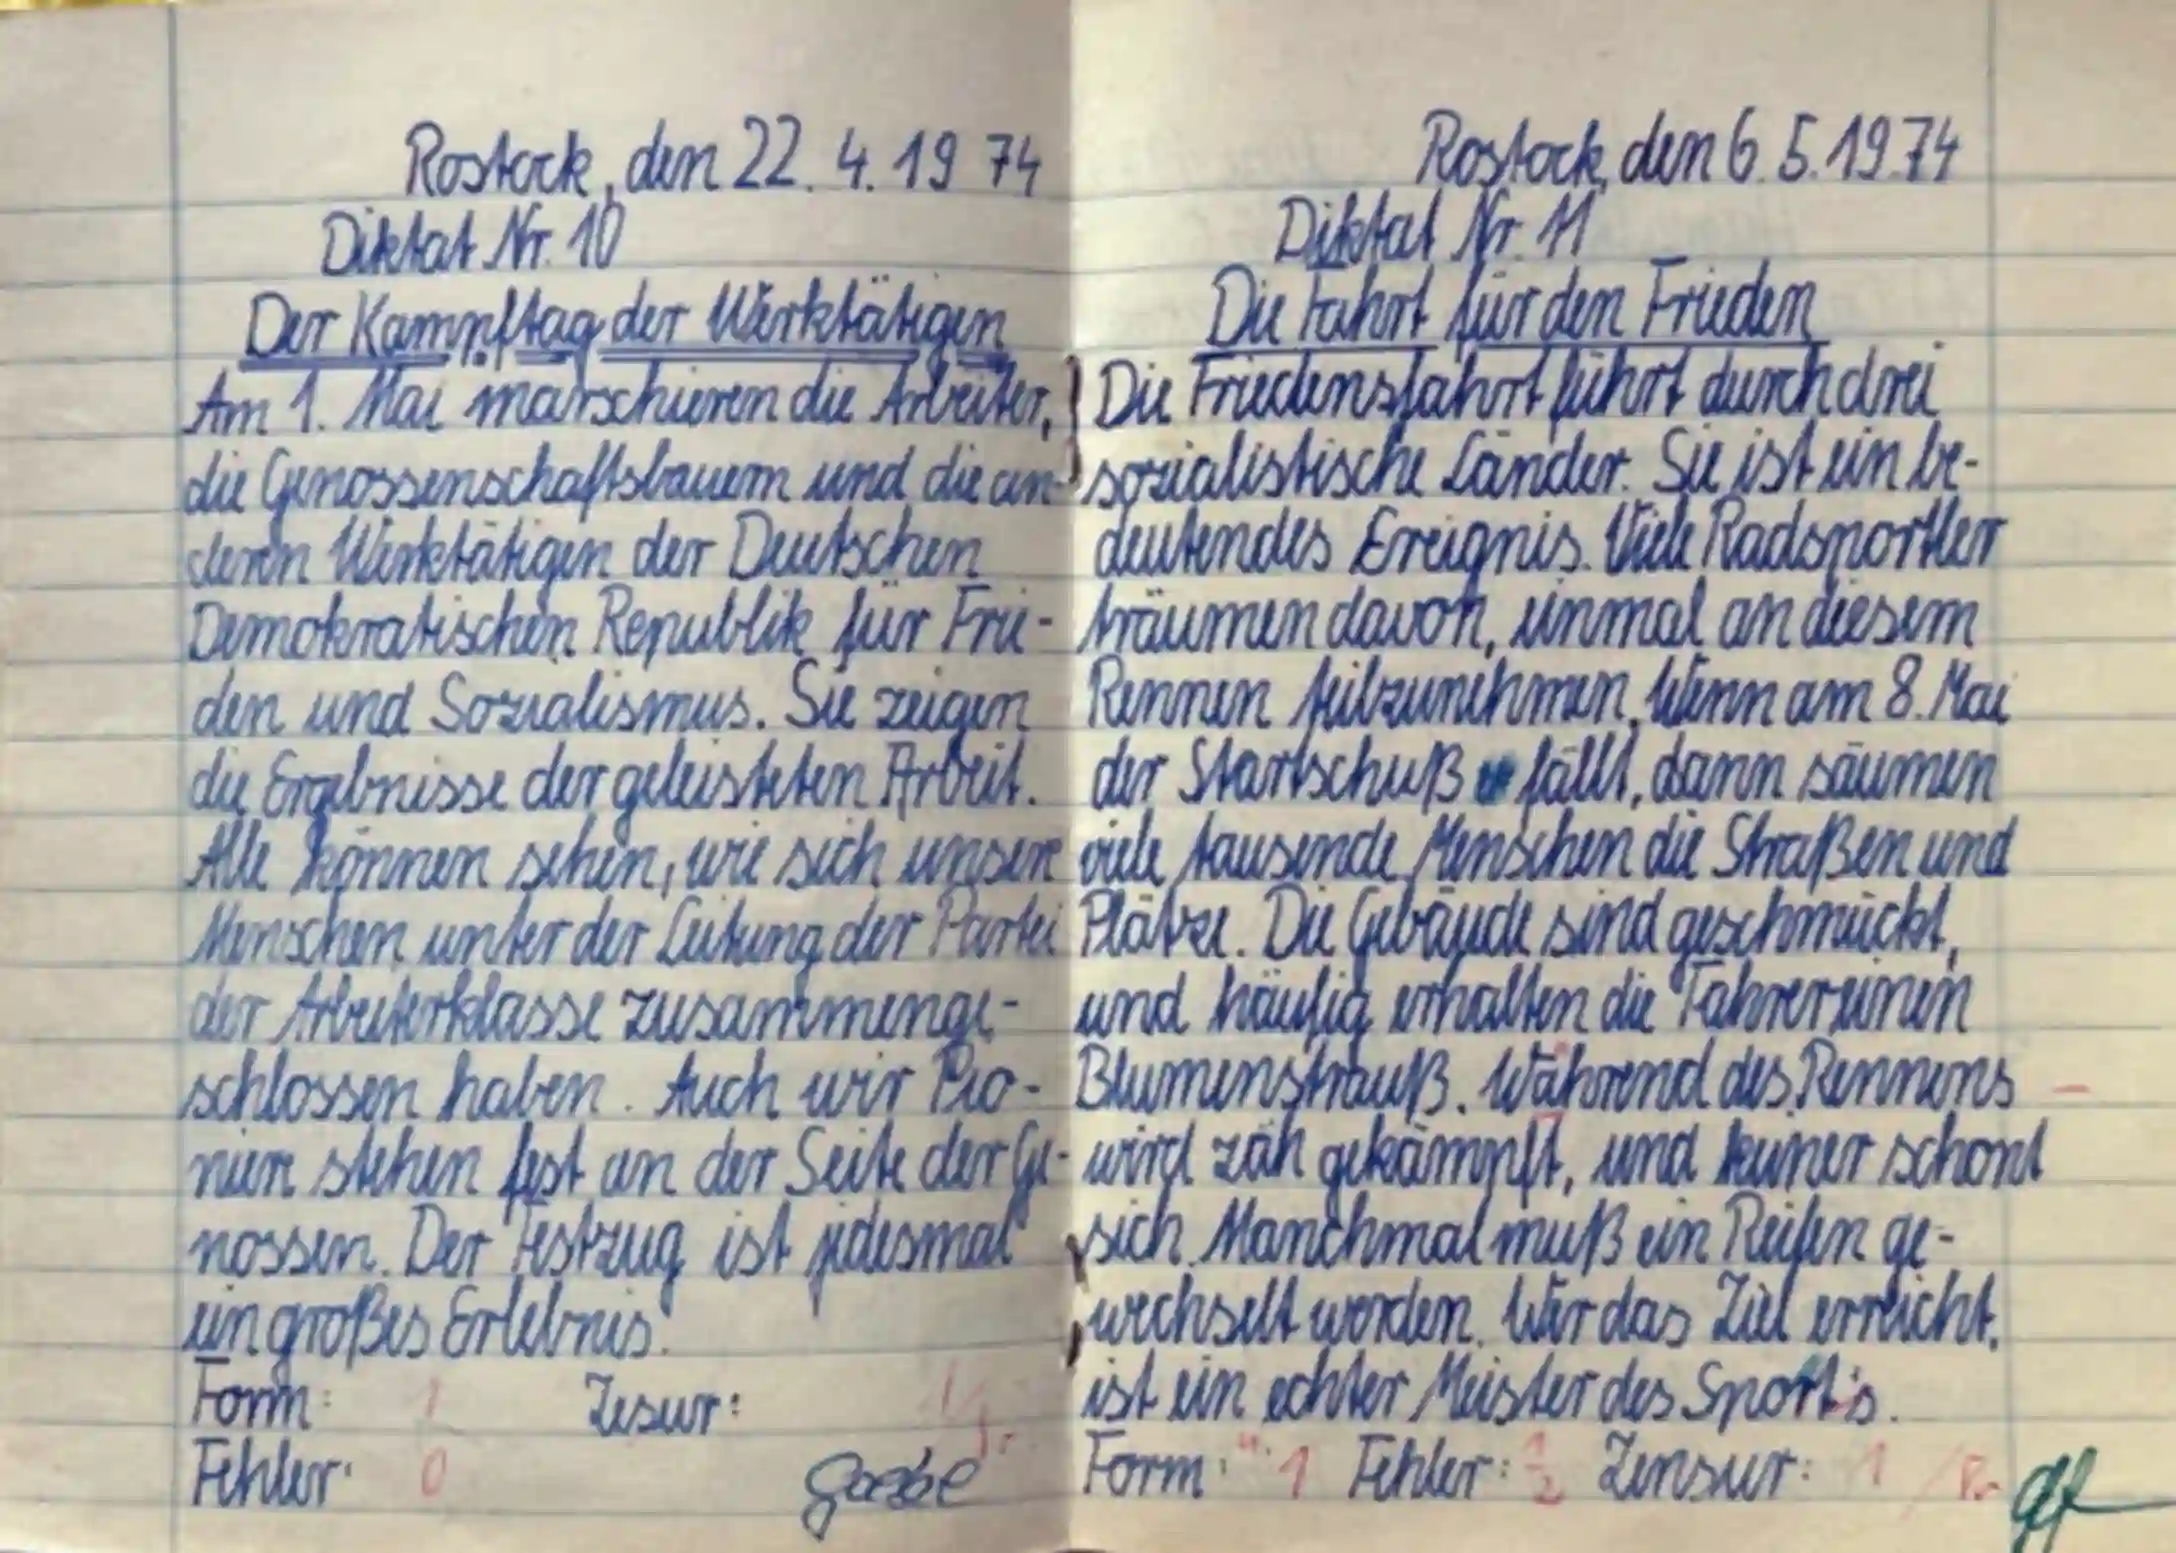 Rostock, den 22. 4. 1974
Diktat Nr. 10
Der Kampftag der Werktätigen
Am 1. Mai marschieren die Arbeiter,
die Genossenschaftsbauern und die an-
deren Werktätigen der Deutschen
Demokratischen Republik für Frie-
den und Sozialismus. Sie zeigen
die Ergebnisse der geleisteten Arbeit.
Alle können sehen, wie sich unsere
Menschen unter der Leitung der Partei
der Arbeiterklasse zusammenge-
schlossen haben. Auch wir Pio-
niere stehen fest an der Seite der Ge-
nossen. Der Festzug ist jedesmal
ein großes Erlebnis.
Form: 1 Zesur: 1
Fehler: 0
Rostock, den 6. 5. 1974
Diktat Nr. 11
Die Fahrt für den Frieden
Die Friedensfahrt führt durch drei
sozialistische Länder. Sie ist ein be-
deutendes Ereignis. Viele Radsportler
träumen davon, einmal an diesem
Rennen teilzunehmen. Wenn am 8. Mai
der Startschuß fällt, dann säumen
viele tausende Menschen die Straßen und
Plätze. Die Gebäude sind geschmückt,
und häufig erhalten die Fahrer einen
Blumenstrauß. Während des Rennens
wird zäh gekämpft, und keiner schont
sich. Manchmal muß ein Reifen ge-
wechselt werden. Wer das Ziel erreicht,
ist ein echter Meister des Sport's.
Form: 1 Fehler: 1/2 Zensur: 1